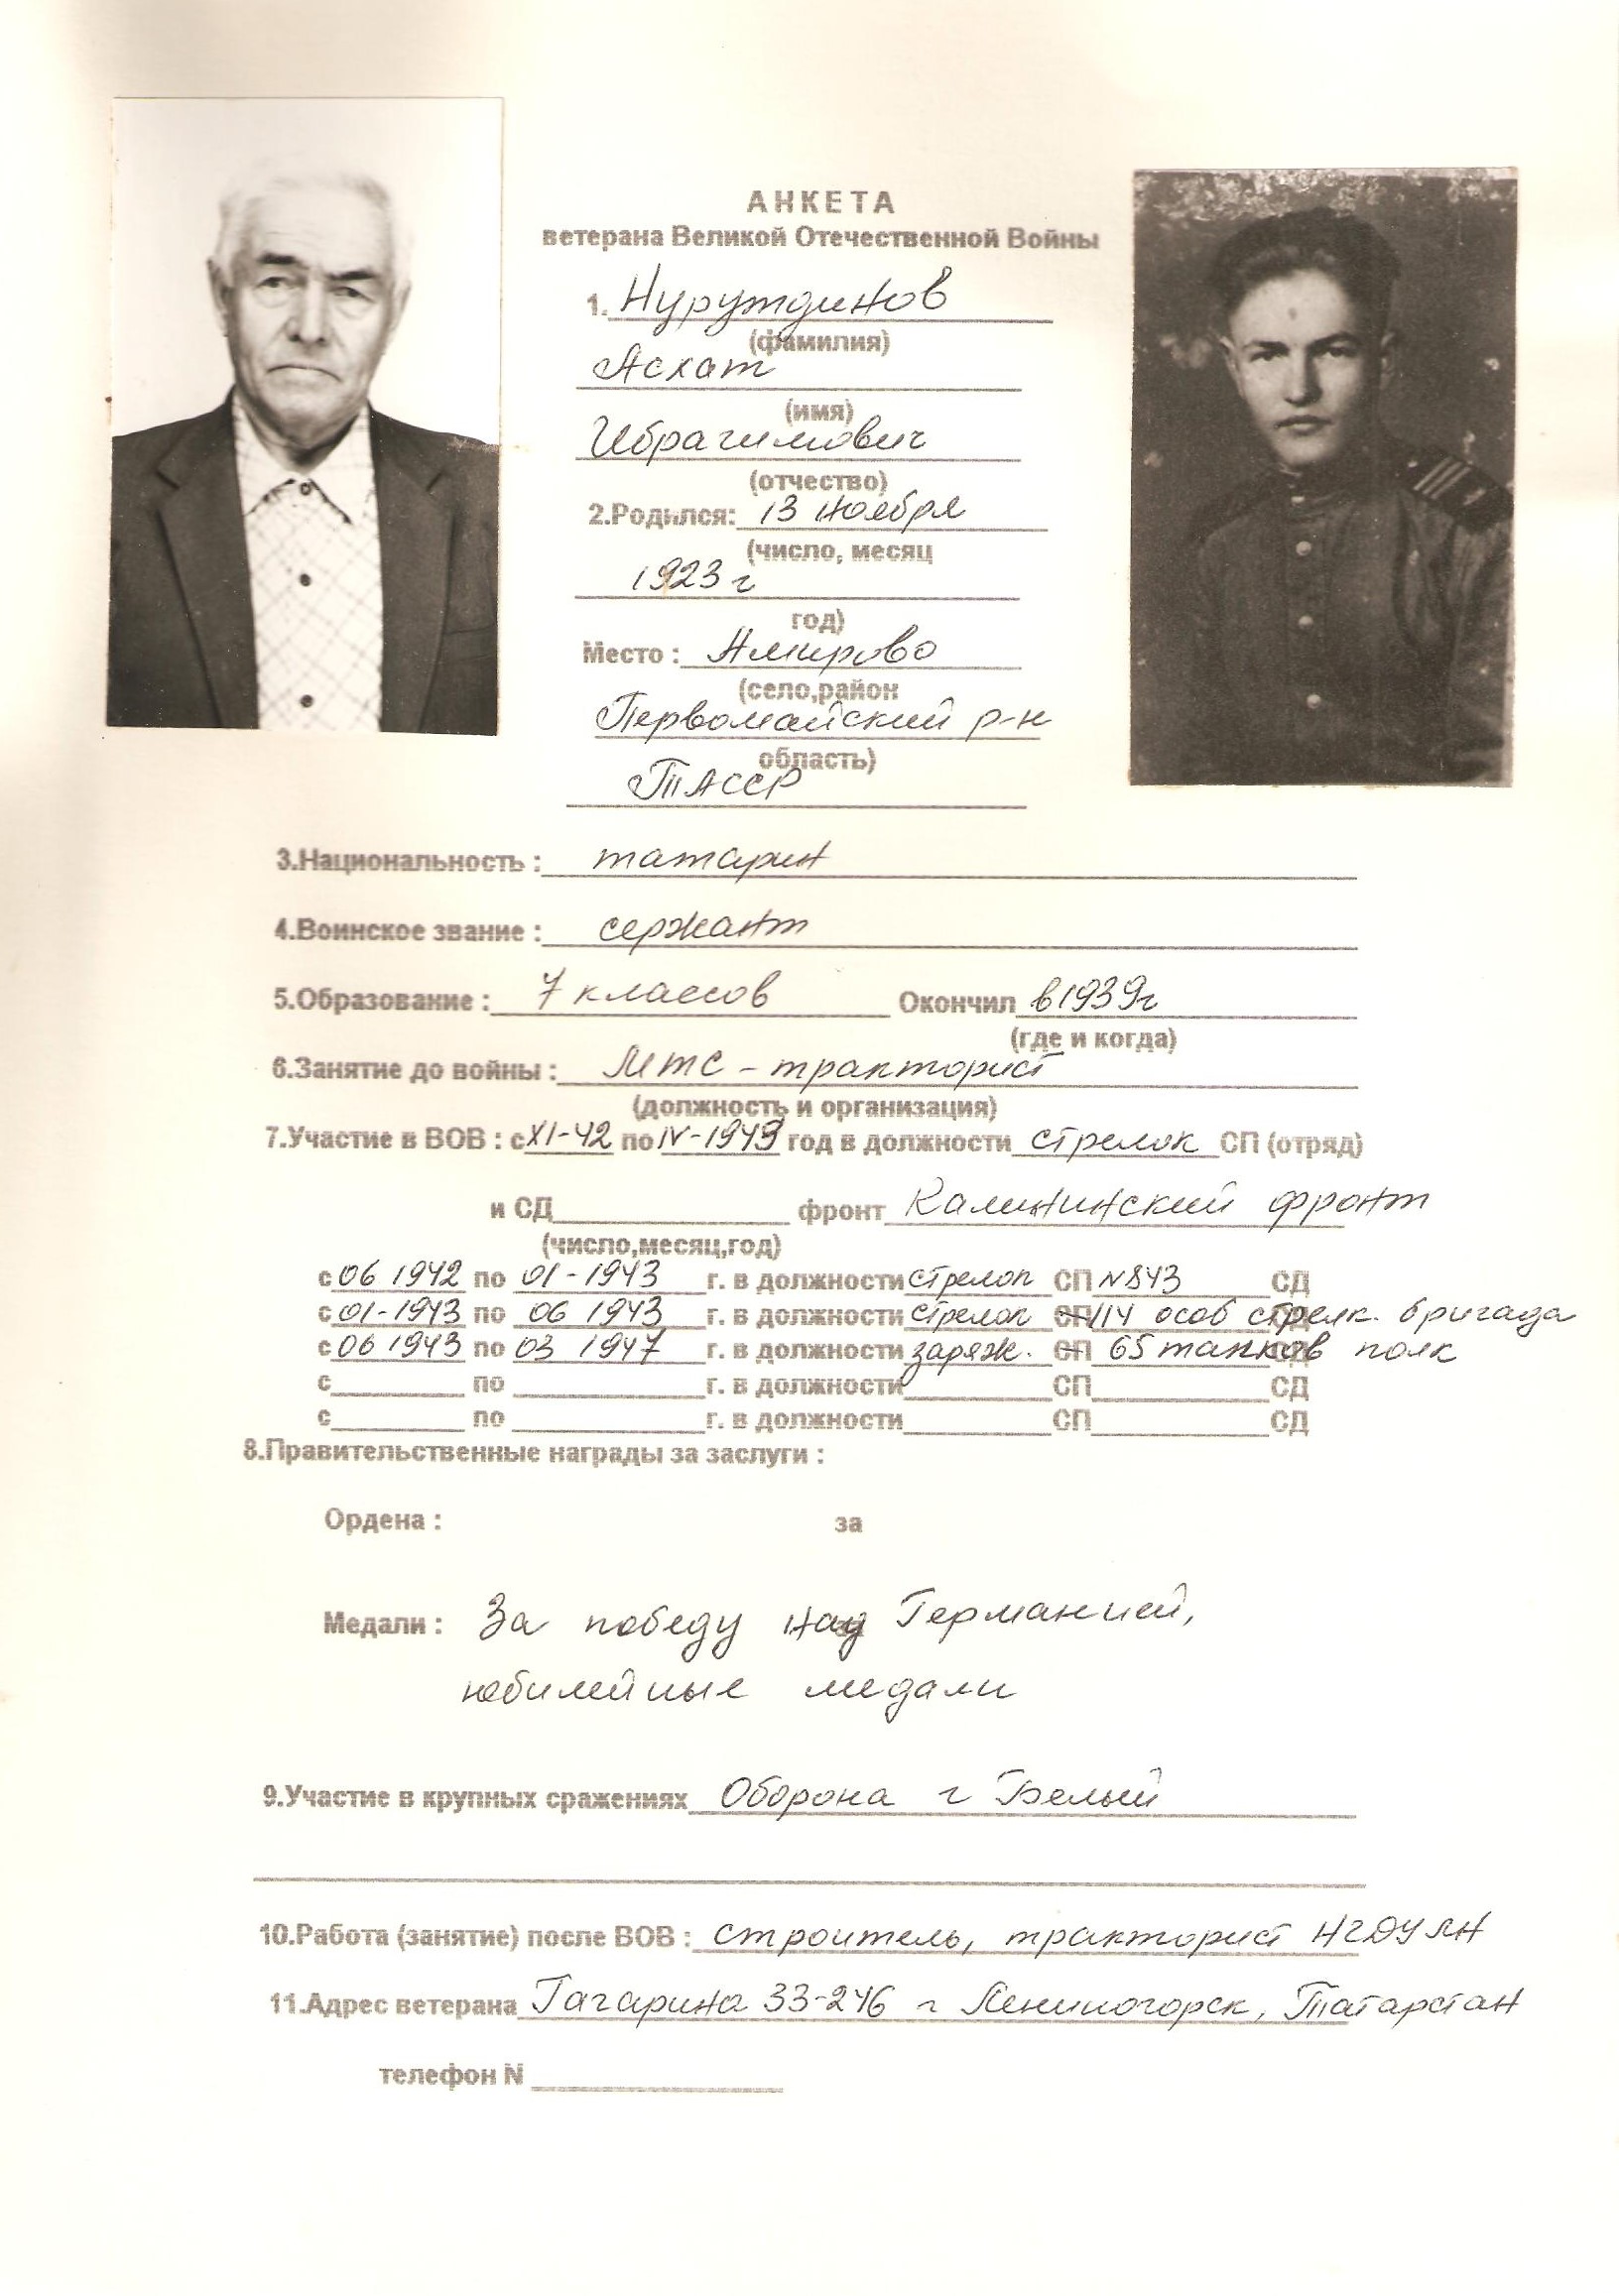 АНКЕТА
ветерана Великой Отечественной Войны
1. Нурутдинов
(фамилия)
Асхат
(имя)
Ибрагимович
(отчество)
2.Родился: 13 ноября
(число, месяц
1923 г
год)
Место : Амирово
(село,район
Первомайский р-н
область)
ТАССР
3.Национальность : татарин
4.Воинское звание : сержант
5.Образование : 7 классов Окончил в 1939г
(где и когда)
6.Занятие до войны : МТС - тракторист
(должность и организация)
7.Участие в ВОВ : с XI-42 по IV-1943 год в должности стрелок СП (отряд)
и СД фронт Калининский фронт
(число,месяц,год)
с 06 1942 по 01-1943 г. в должности стрелок СП N843 СД
с 01-1943 по 06 1943 г. в должности стрелок СП 114 особ стрелк. бригада
с 06 1943 по 03 1947 г. в должности заряж. СП 65 танков полк
с по г. в должности СП СД
с по г. в должности СП СД
8.Правительственные награды за заслуги :
Ордена : за
Медали : За победу над Германией,
юбилейные медали
9.Участие в крупных сражениях Оборона г Белый
10.Работа (занятие) после ВОВ : строитель, тракторист НГДУ ЛН
11.Адрес ветерана Гагарина 33-246 г Лениногорск, Татарстан
телефон N